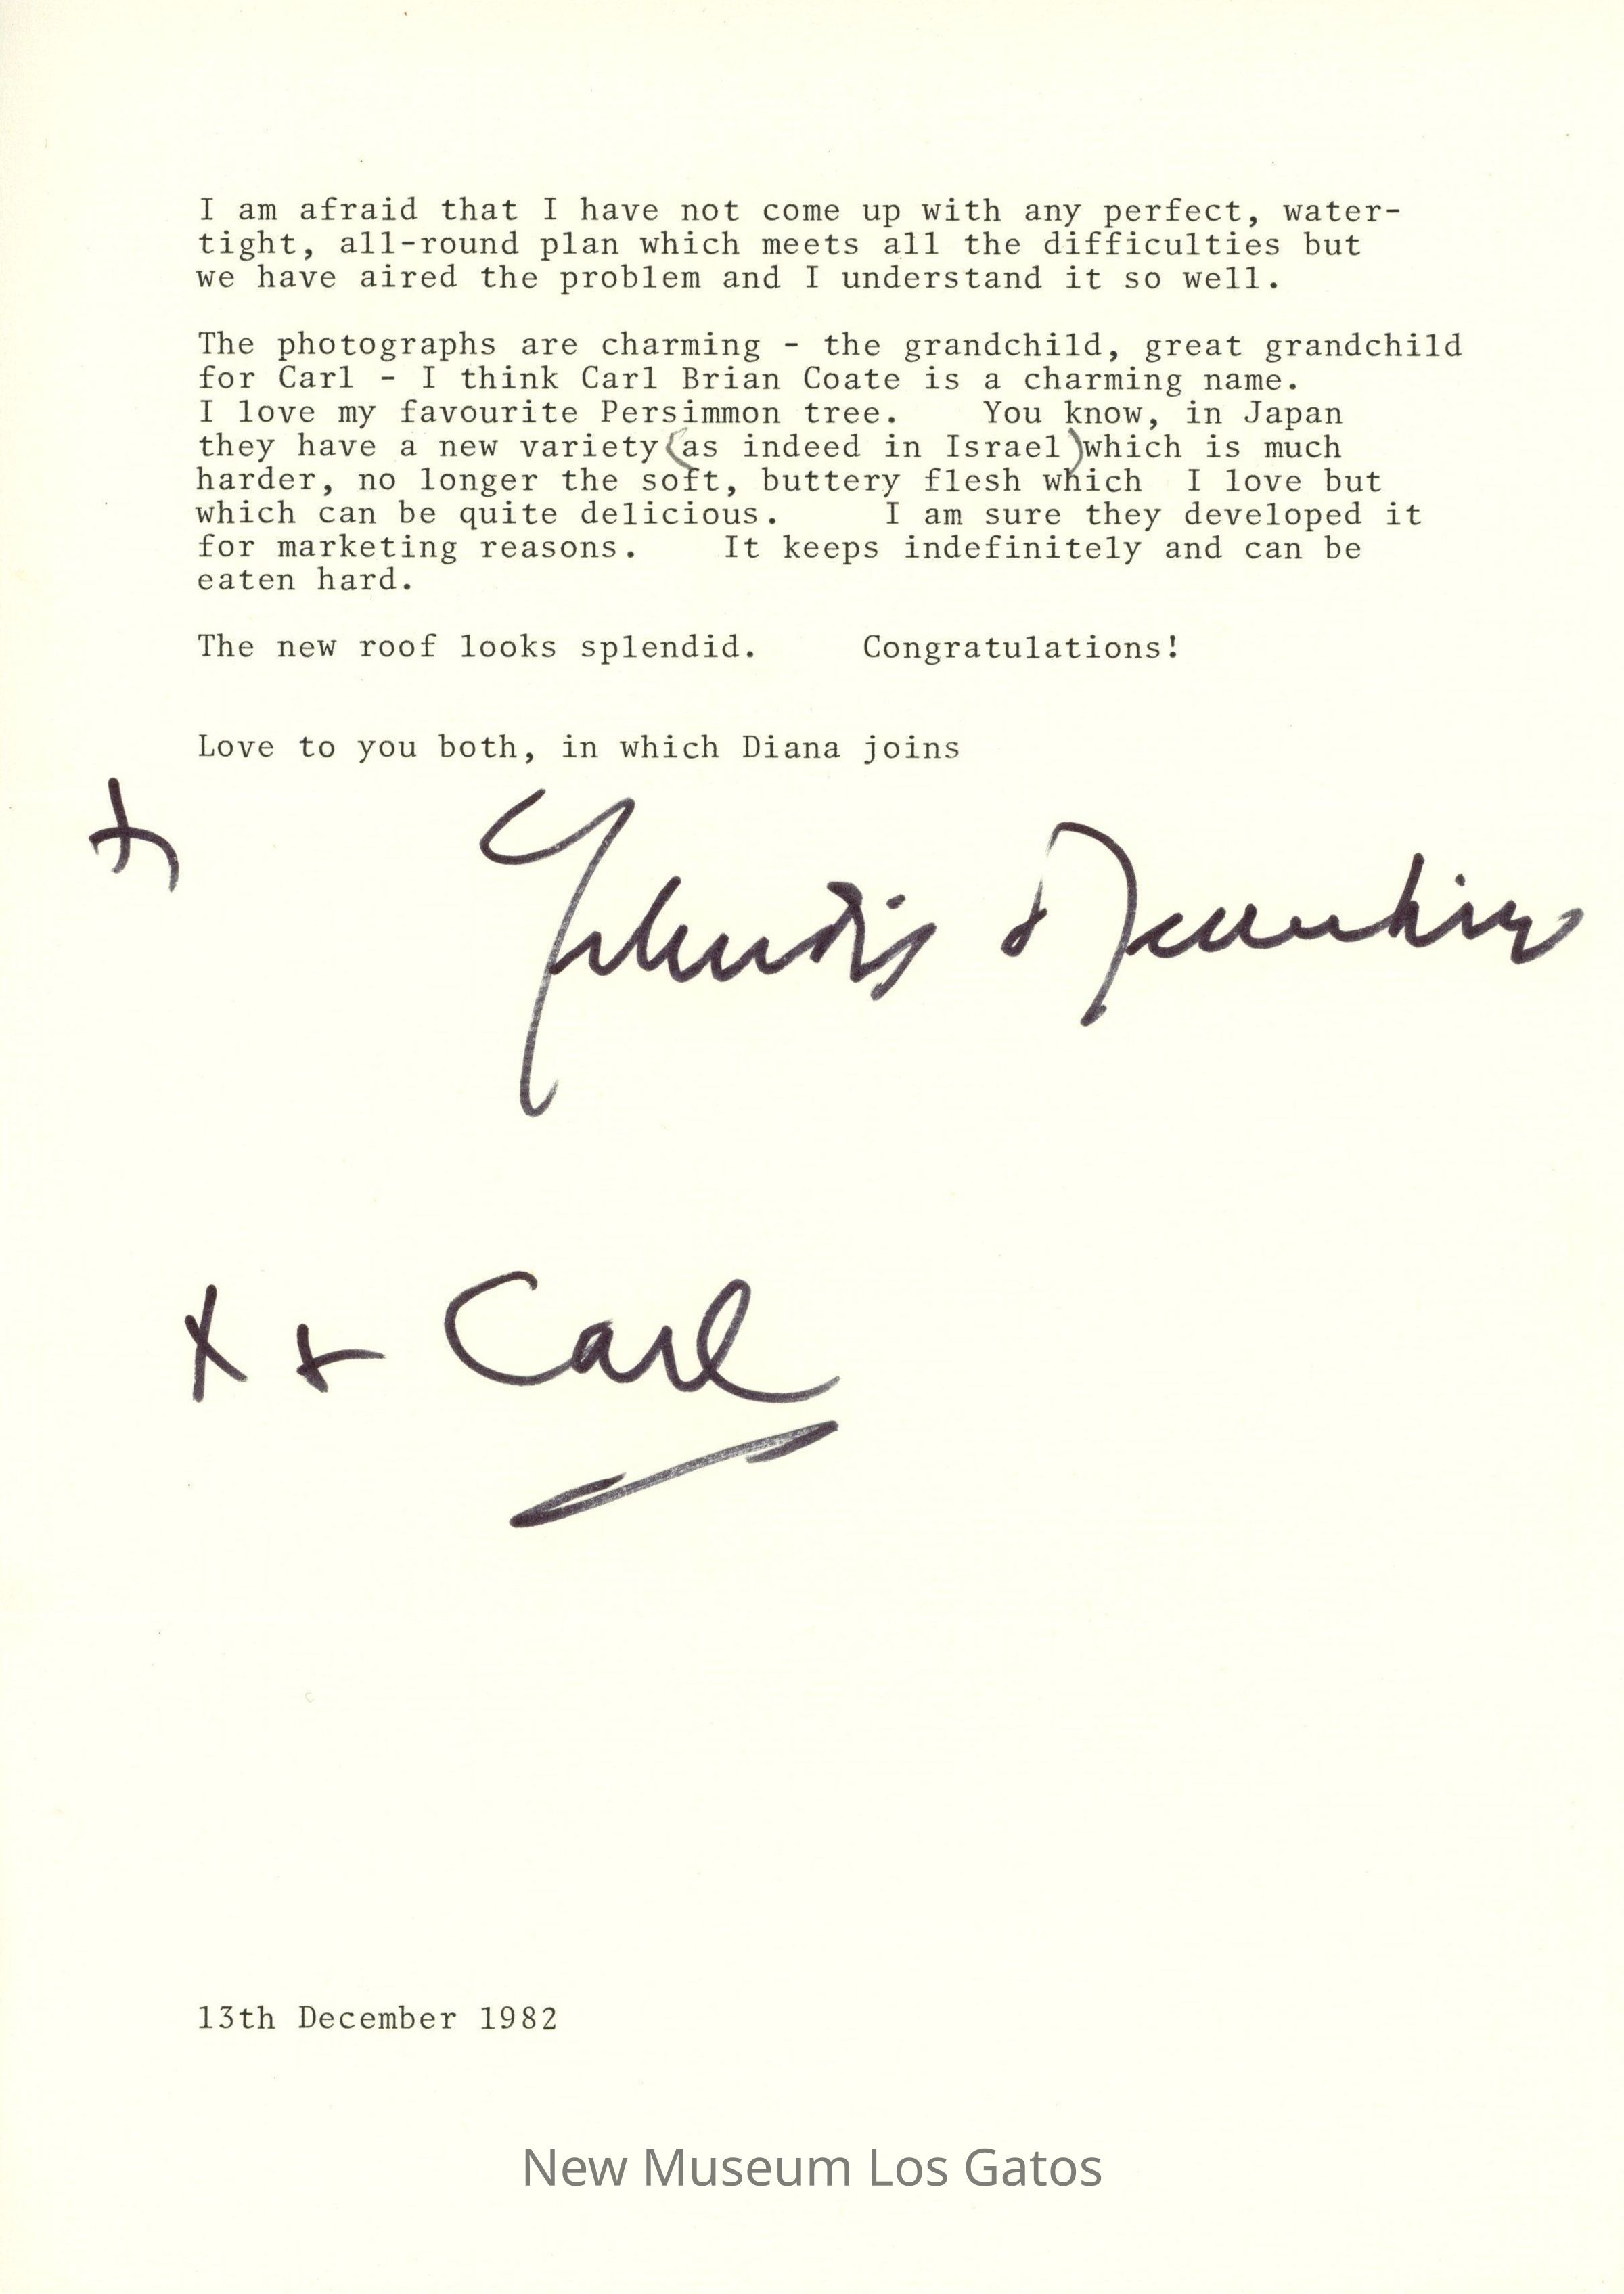 I am afraid that I have not come up with any perfect, water-
tight, all-round plan which meets all the difficulties but
we have aired the problem and I understand it so well.
The photographs are charming - the grandchild, great grandchild
for Carl - I think Carl Brian Coate is a charming name.
I love my favourite Persimmon tree. You know, in Japan
they have a new variety (as indeed in Israel) which is much
harder, no longer the soft, buttery flesh which I love but
which can be quite delicious. I am sure they developed it
for marketing reasons. It keeps indefinitely and can be
eaten hard.
The new roof looks splendid. Congratulations!
Love to you both, in which Diana joins
+
Yehudi & Menuhin
x + Carl
13th December 1982
New Museum Los Gatos